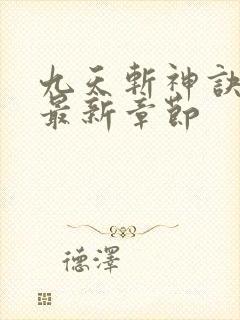 九天斬神訣
最新章節
德澤